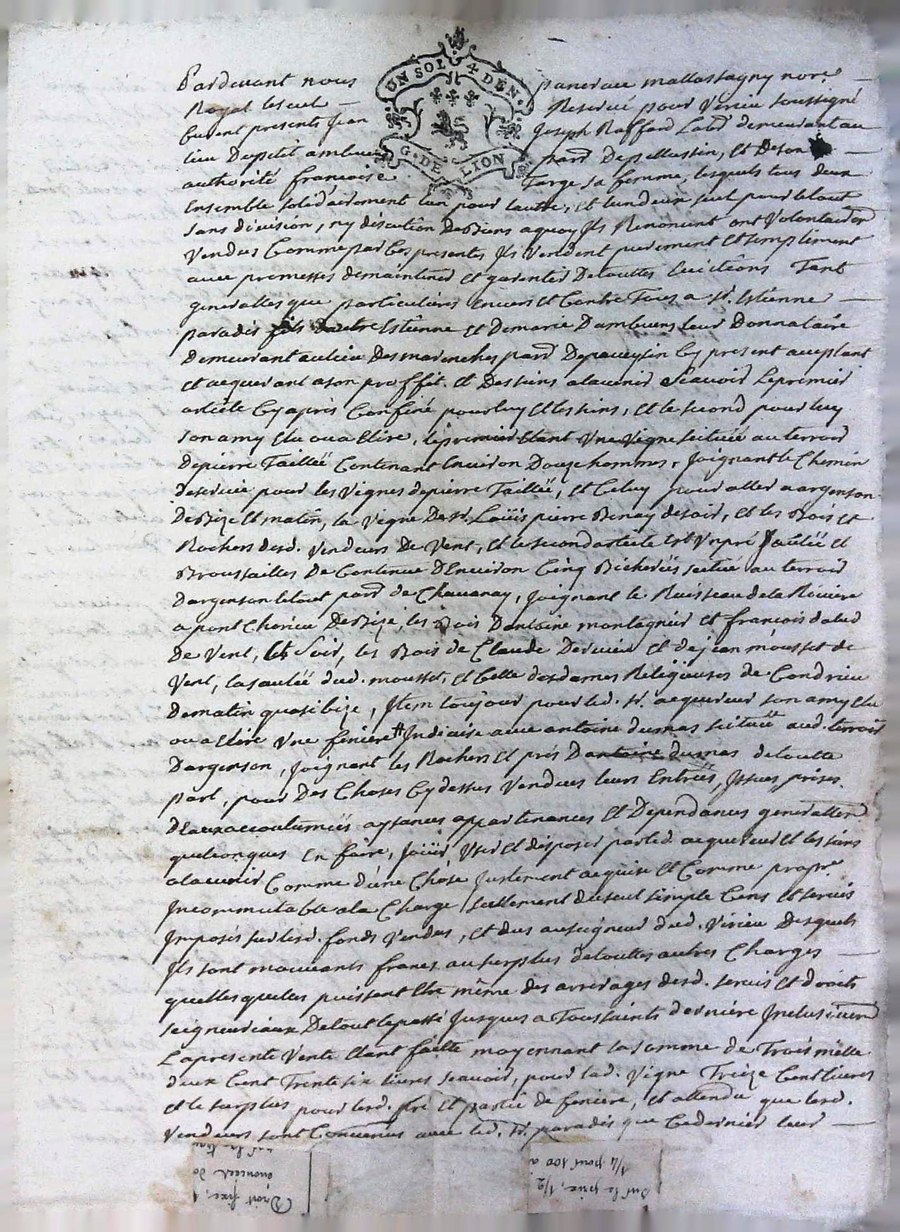 UN SOL 4 DEN.
G. DE LYON
Pardevant nous pancrace mallassagny nore.
Royal Reservé pour Virieu soussigné
furent presents Jean Joseph Raffard Labr demeurant au
lieu Depetit ambuent parr Depellussin, et De son
authorité francoise Farge sa femme, lesquels tous deux
Ensemble solidairement l'un pour lautre, et lun deux seul pour letout
sans division, ny discution De biens aquoy Ils Renoncent ont Volontairemt
Vendus Comme par les presentes Ils Vendent purement et simplement
avec promesses demaintenir et garentir De touttes Evictions Tant
generalles que particulieres Envers et Contre Tous a sr. Estienne
paradis fils Estienne et Demarie Dambuent leur Donnataire
Demeurant aulieu Desmaranches parr Depaveysin Cy present acceptant
et acquerant a son proffit et Des siens alavenir Scavoir le premier
article Cy après Confiné pour luy et les siens, et le second pour luy
son amy Elu ou a Elire, le premier Etant Une Vigne scituée au terroir
De pierre Taillée Contenant Environ Douze hommes, Joignant le Chemin
deservie pour les Vignes de pierre Taillée, et Celuy pour aller a argenson
De Bize et matin, la Vigne De sr. Loüis pierre Benay de soir, et les Bois et
Rochers desd. Vendeurs De Vent, et le second article Est Un pré Saulée et
Broussailles De Contenue D'Environ Cinq Bicherées scitué au terroir
Dargenson letout parr de Chavanay, Joignant le Ruisseau de la Riviere
a pont Chorieu De Bize, les Bois Dantoine montagnier et françois
De Vent, et Soir, les Bois de Claude Dervieu et de jean mousset de
Vent, la saulée dud. mousset, et Celle des dames Religieuses de Condrieu
De matin quasi bize, Item toujour pour led. sr. acquereur son amy Elu
ou a Elire Une feniere Indivise avec antoine dumas scituée aud. terroir
Dargenson, Joignant les Rochers et prés Dantoine dumas detoutte
part, pour Des Choses Cy dessus Vendues leurs Entrées, Issues, prises
D'eaux accoutumées aysances appartenances et Dependances generallemt
quelconques En faire, Joüir, User et disposer par led. acquereur et les siens
alavenir Comme d'une Chose Justement acquise et Comme propre.
Incommutable ala Charge seullement du seul simple Cens et servis
Imposés sur lesd. fonds Vendus, et dus au seigneur dud. Virieu Desquels
Ils sont mouvants francs au surplus de touttes autres Charges
quelles quelles puissent Etre même des arrerages desd. servis et droits
seigneuriaux De tout le passé Jusques a Toussaints derniére Inclusivemt
La presente Vente Etant faitte moyennant la somme de Trois mille
deux Cent Trente six livres scavoir, pour lad. Vigne Treize Cent livres
et le surplus pour lesd. pré et partie de feniere, et attendu que lesd.
Vendeurs sont Convenus avec led. sr. paradis que Cedernier leur
Droit fixe, 1
énoncées do
Sur le prix, 1/2
1/4 pour 100 a